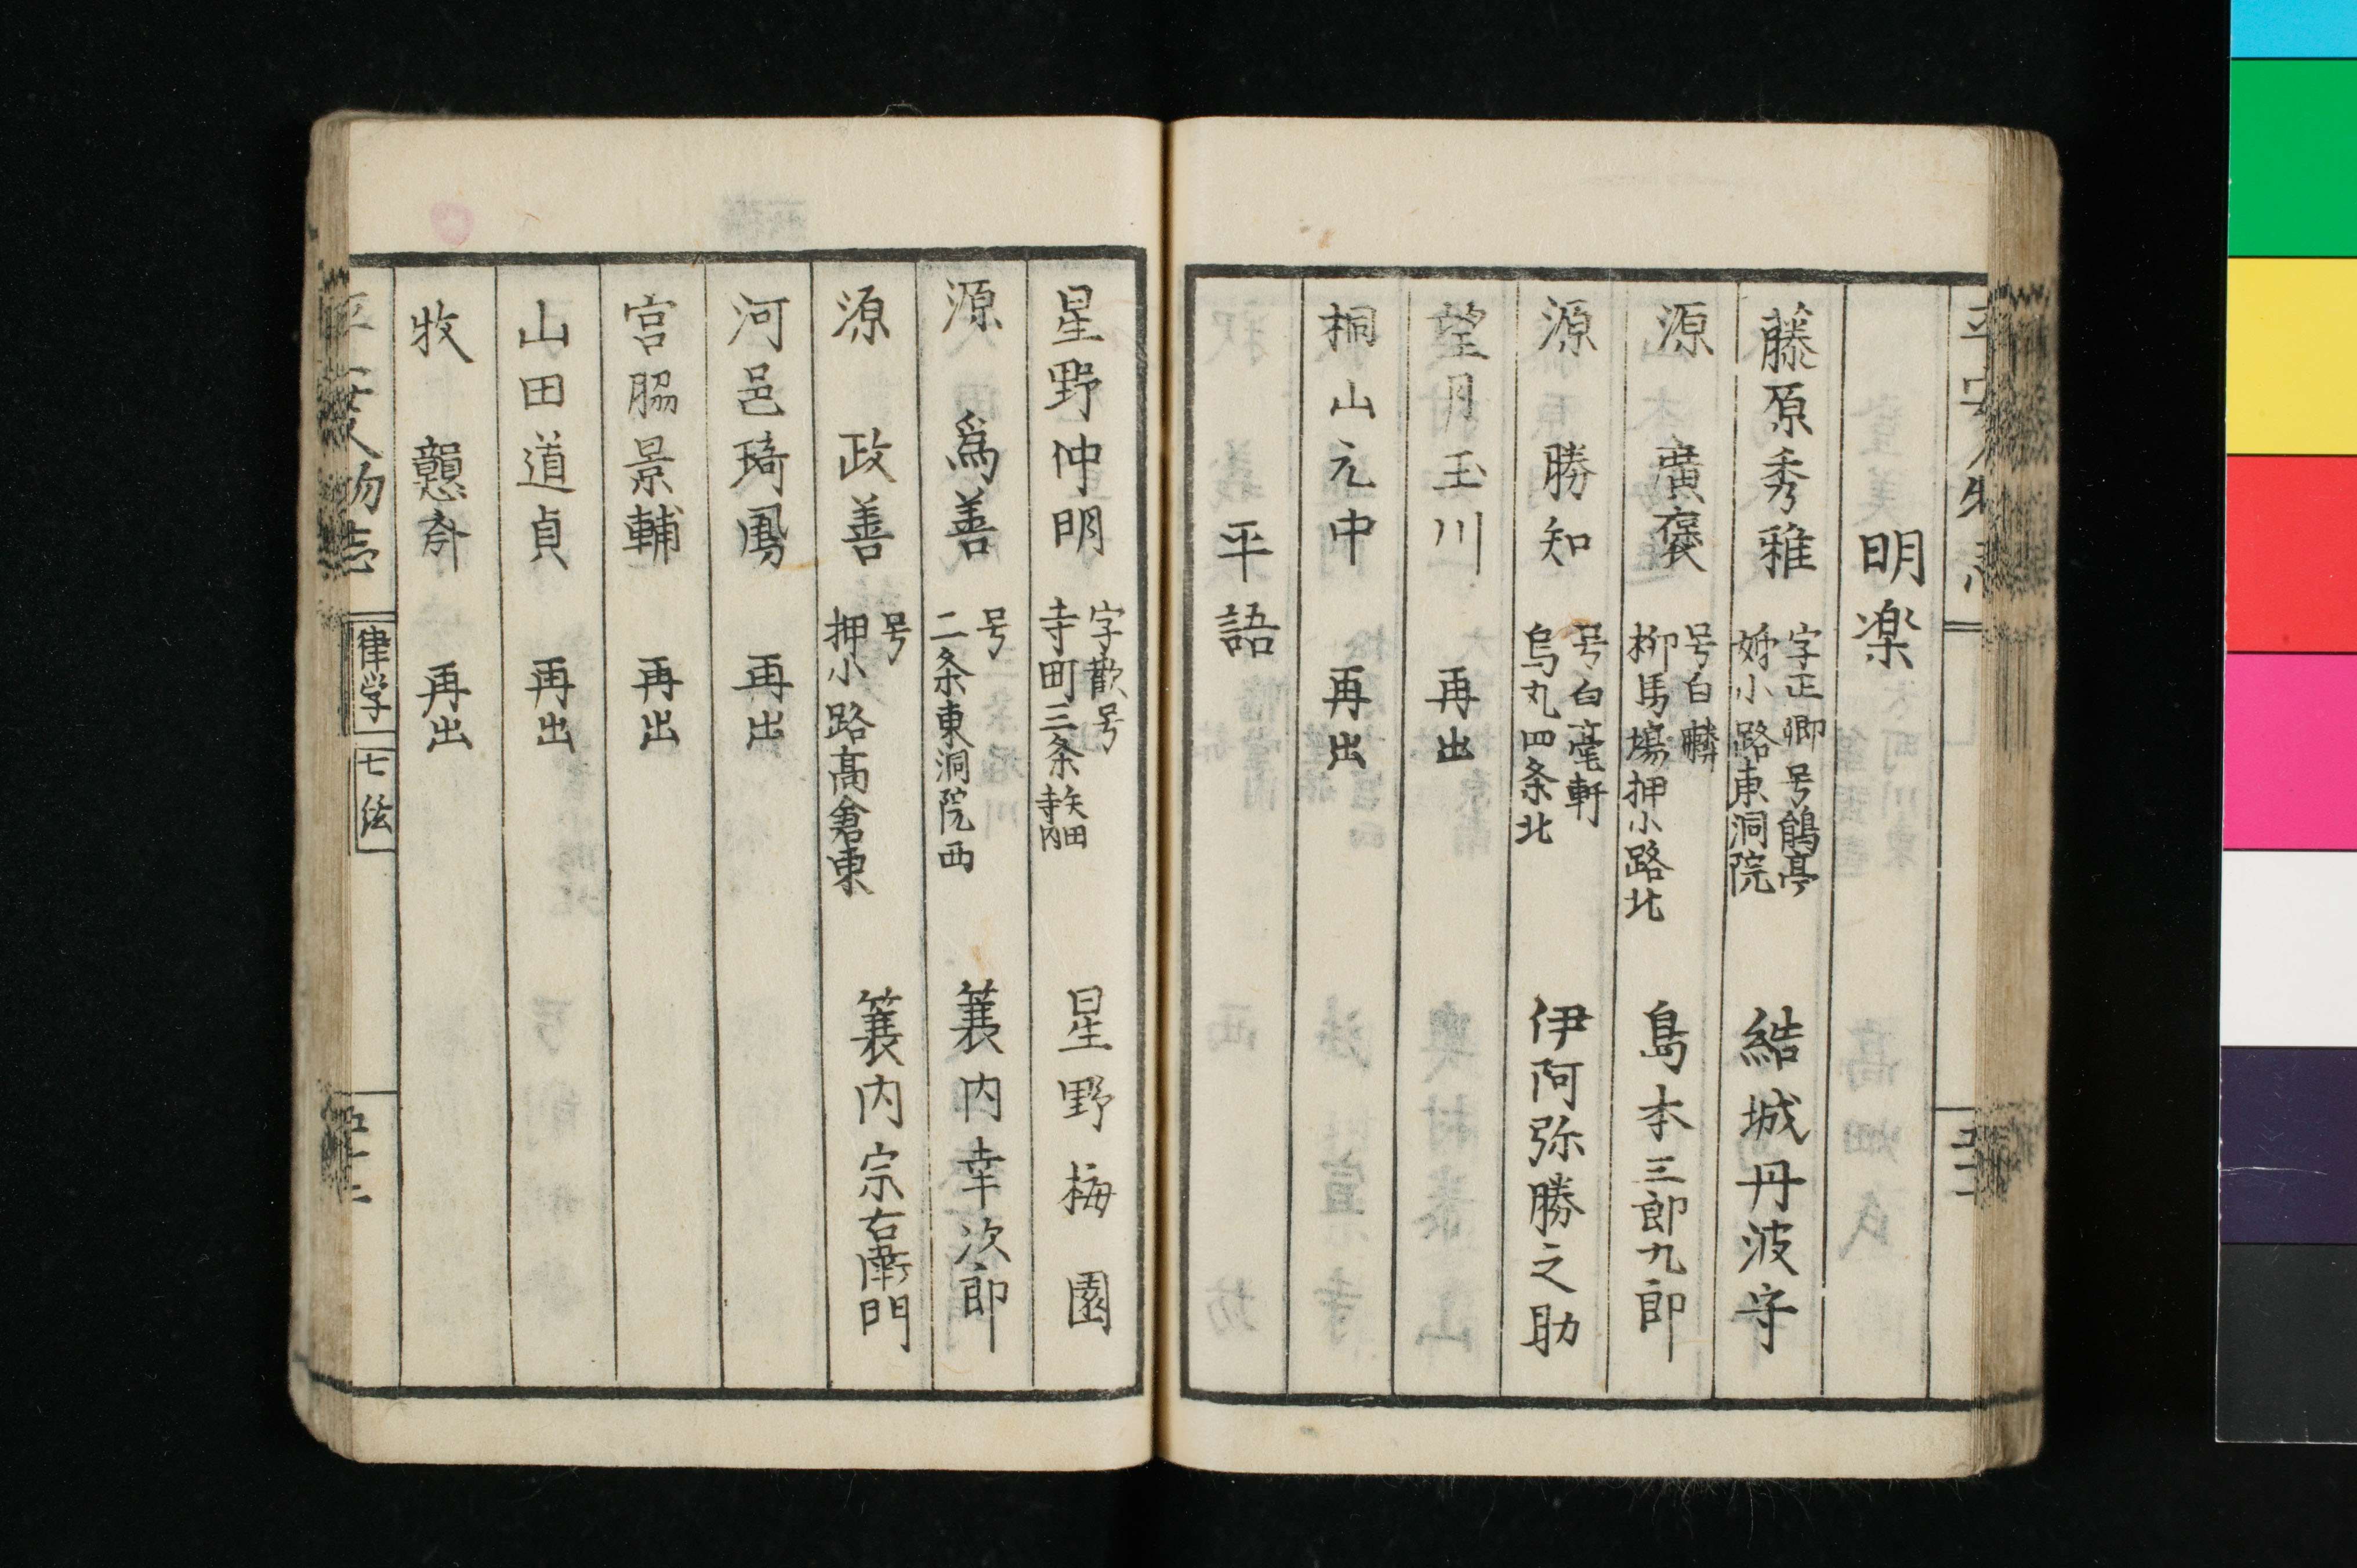 明楽
藤原秀雅 字正卿 号鵤亭 姉小路東洞院 結城丹波守
源 廣褒 号白麟 柳馬塲押小路北 島本三郎九郎
源 勝知 号白毫軒 烏丸四条北 伊阿弥勝之助
望月玉川 再出
桐山元中 再出
平語
星野仲明 字歡号 寺町三条 矢田寺内 星野梅園
源 為善 号 二条東洞院西 蓑内幸次郎
源 政善 号 押小路髙倉東 蓑内宗右衛門
河邑琦鳳 再出
宮脇景輔 再出
山田道貞 再出
牧 戇斎 再出
律学 七絃